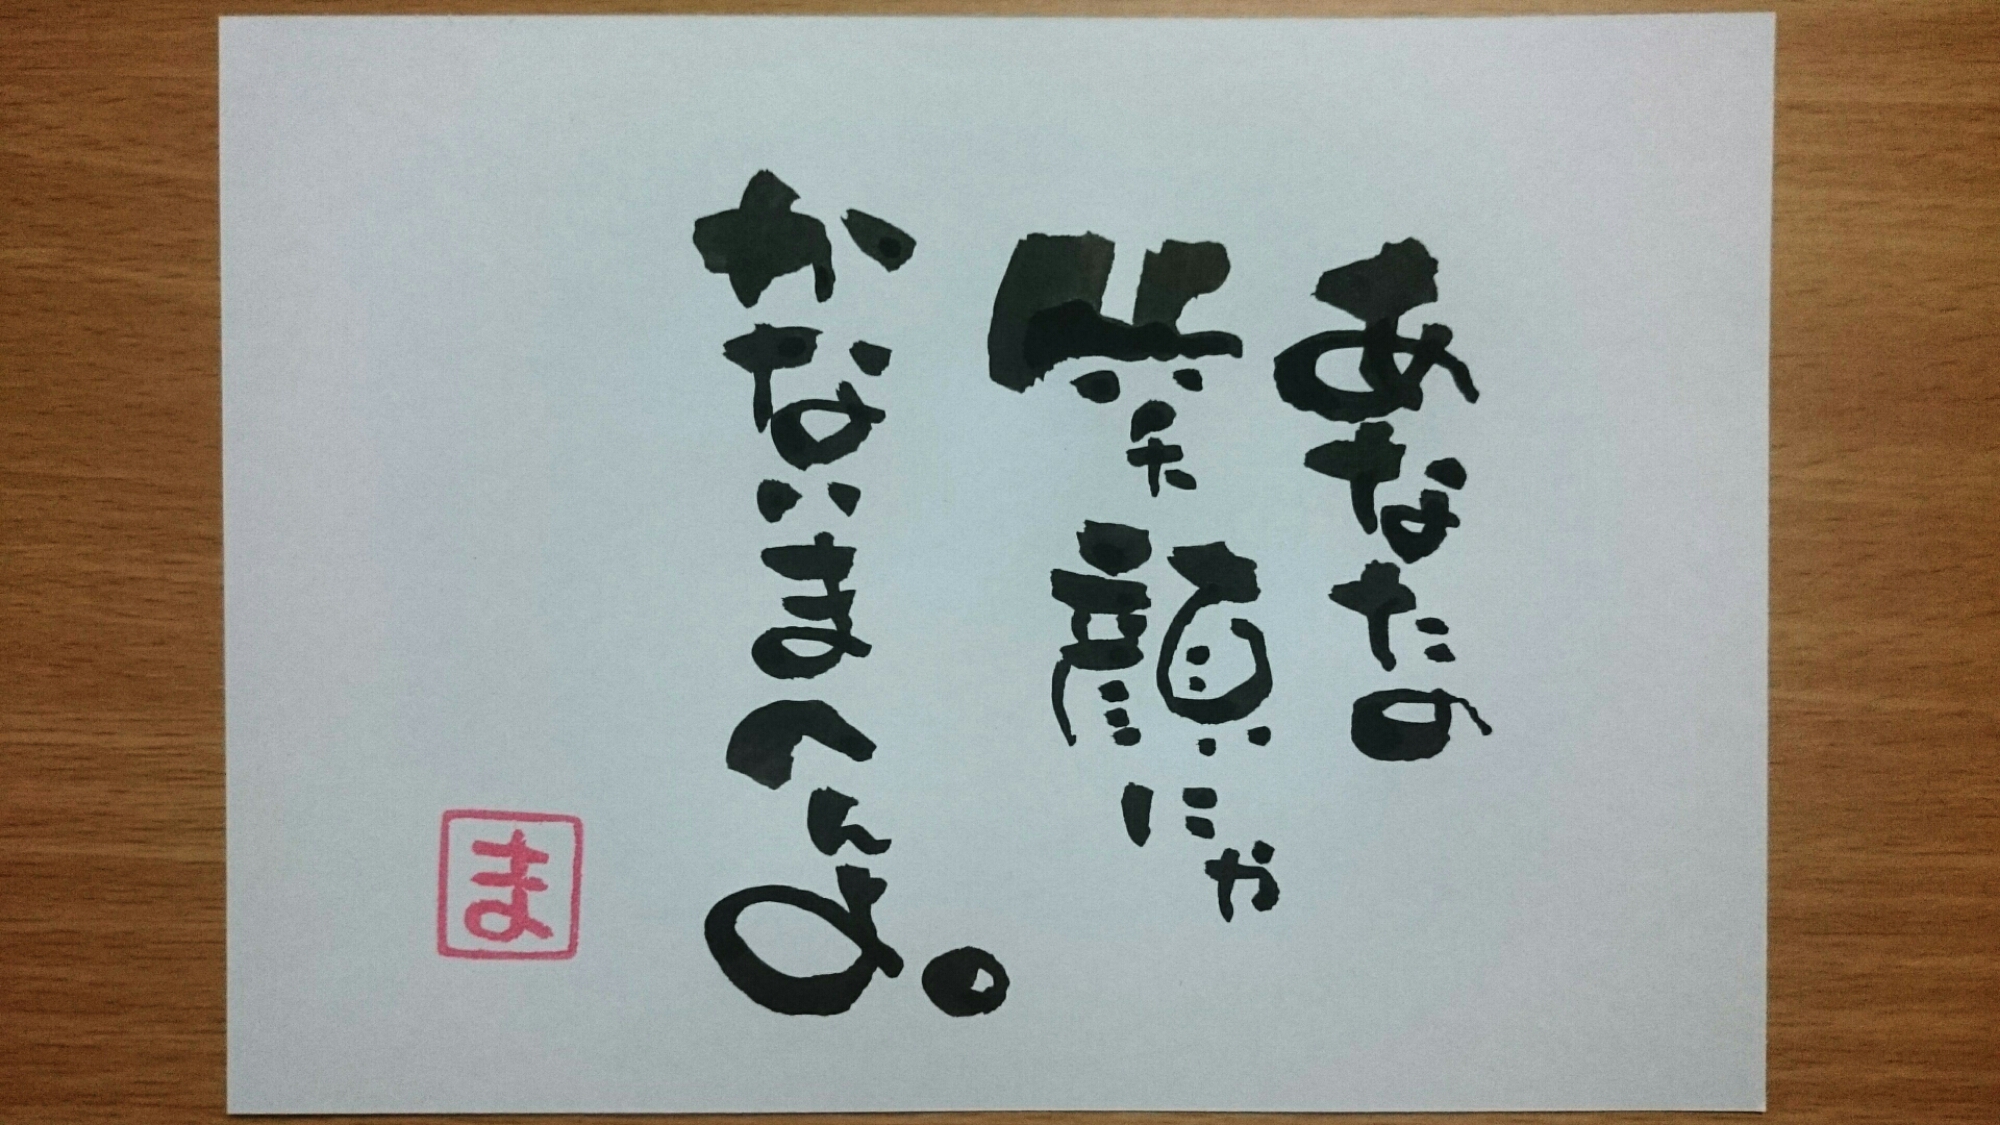 あなたの
笑顔にゃ
かないませんよ。
ま